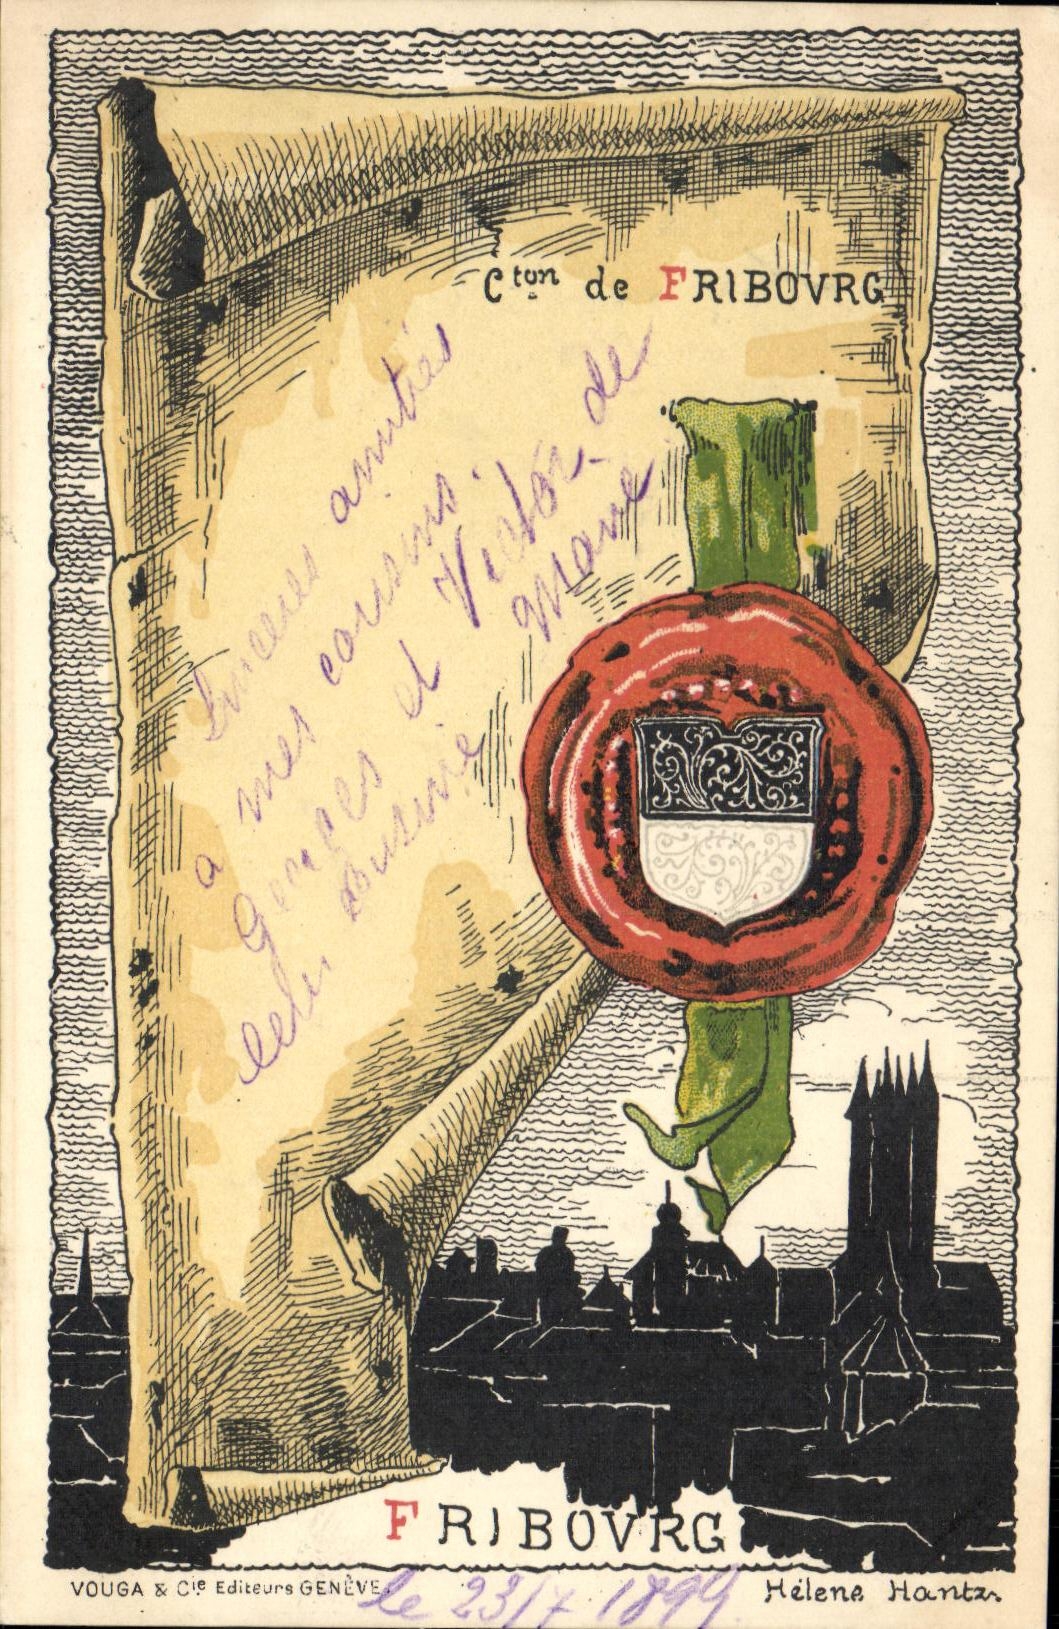 Cton de FRIBOVRG
Sincères amitiés
à mes cousins
et Victor de
Marie
FRIBOVRG
VOUGA & Cie Editeurs GENÈVE.
le 23/7 1899.
Hélene Hantz.